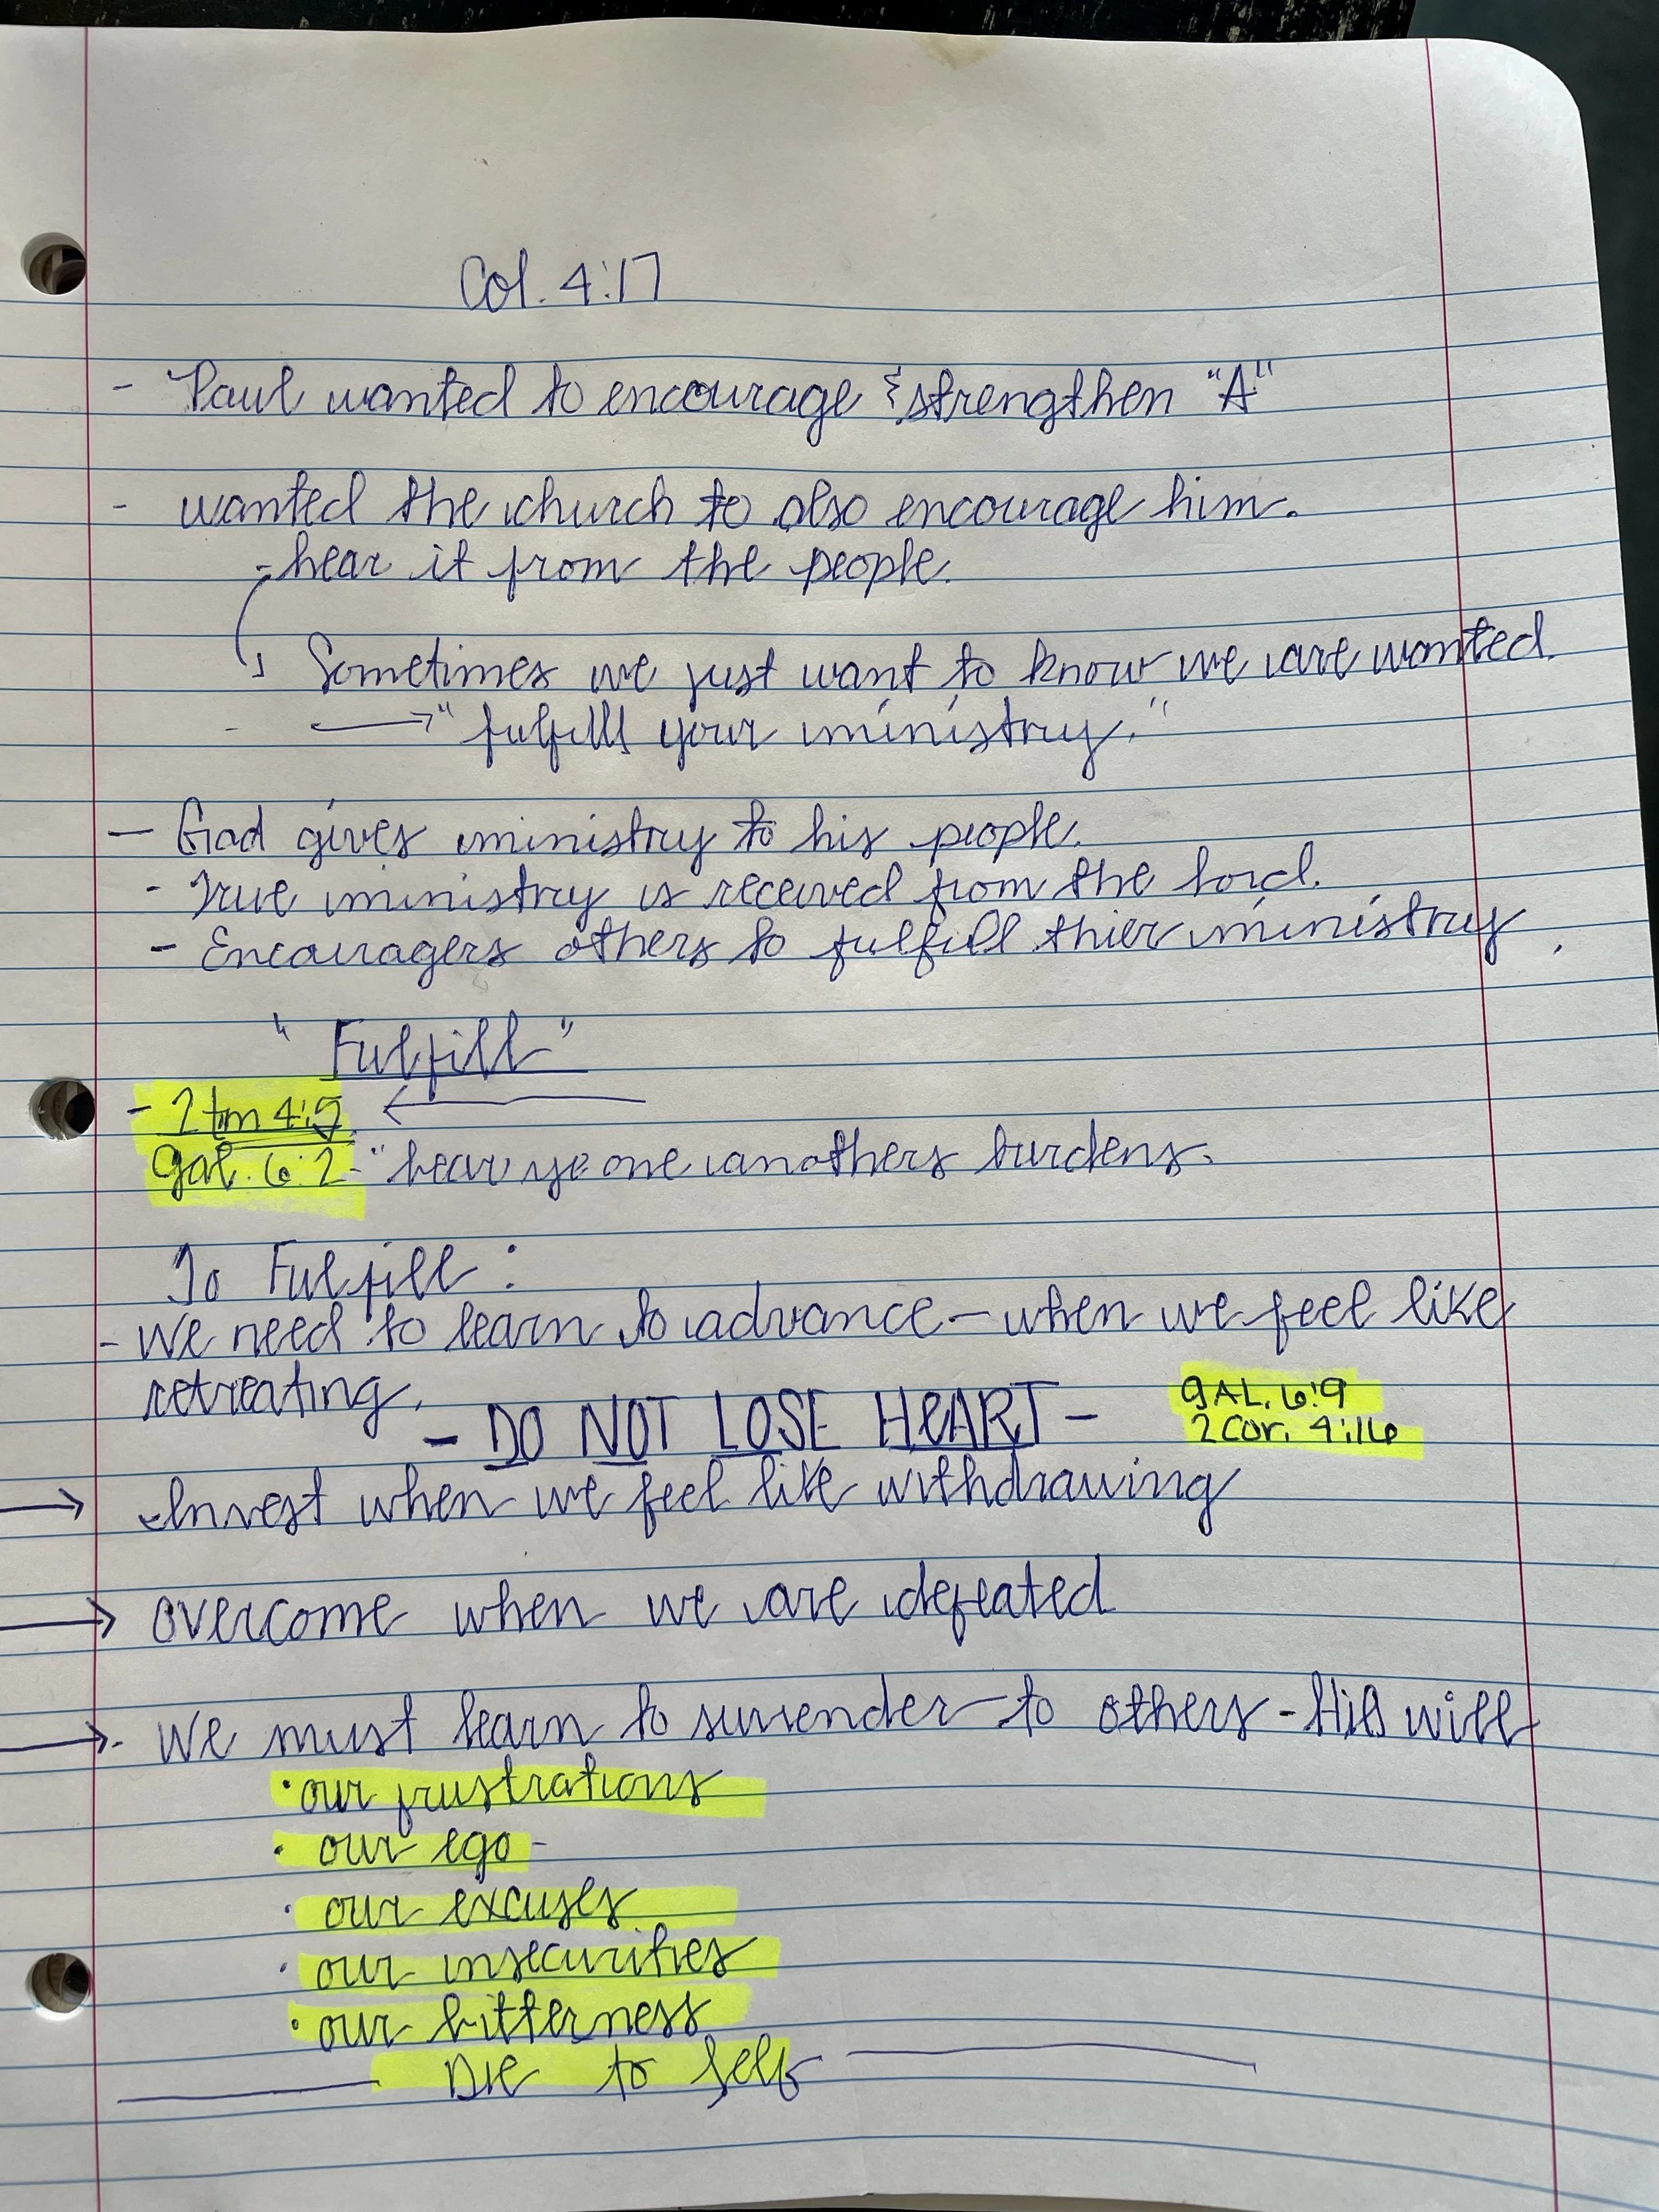 Col. 4:17
- Paul wanted to encourage & strengthen "A"
- wanted the church to also encourage him.
- hear it from the people.
Sometimes we just want to know we are wanted.
- → "fulfill your ministry."
- God gives ministry to his people.
- True ministry is received from the Lord.
- Encouragers others to fulfill thier ministry.
"Fulfill"
- 2 tm 4:5 ←
gal. 6:2 - "bear ye one anothers burdens.
To Fulfill:
- We need to learn to advance - when we feel like
retreating.
- DO NOT LOSE HEART -
GAL. 6:9
2 Cor. 4:16
→ - Invest when we feel like withdrawing
→ overcome when we are defeated
→ - We must learn to surrender to others - His will
• our frustrations
• our ego -
• our excuses
• our insecurities
• our bitterness
Die to Self